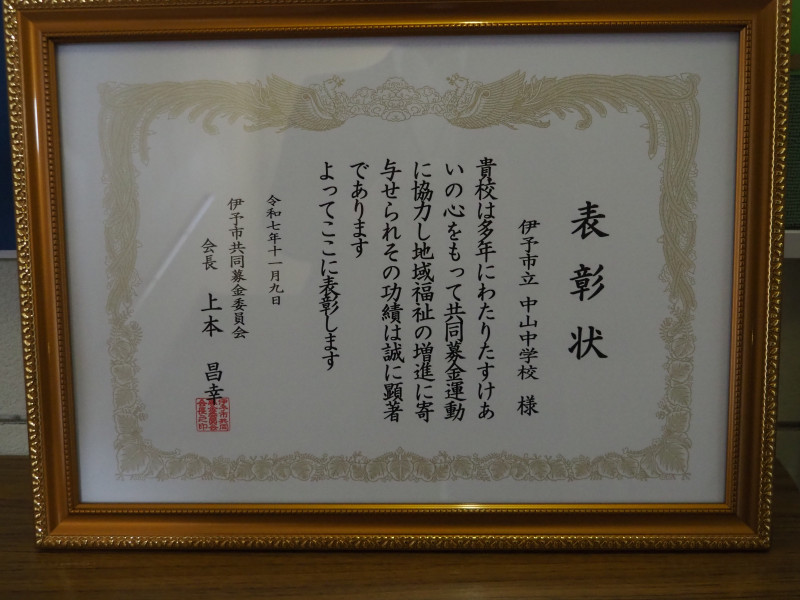 表彰状
伊予市立 中山中学校 様
貴校は多年にわたりたすけあ
いの心をもって共同募金運動
に協力し地域福祉の増進に寄
与せられその功績は誠に顕著
であります
よってここに表彰します
令和七年十一月九日
伊予市共同募金委員会
会長 上本 昌幸